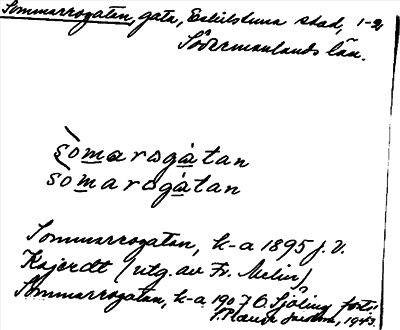 Sommarrogatan, gata, Eskilstuna stad, 1-2
Södermanlands län.
sòmarsgátan
somarsgátan
Sommarrogatan, k-a 1895 f. V.
(utg. av Fr. Melin)
Sommarrogatan, k-a 1907 C. Sjöling
1943.